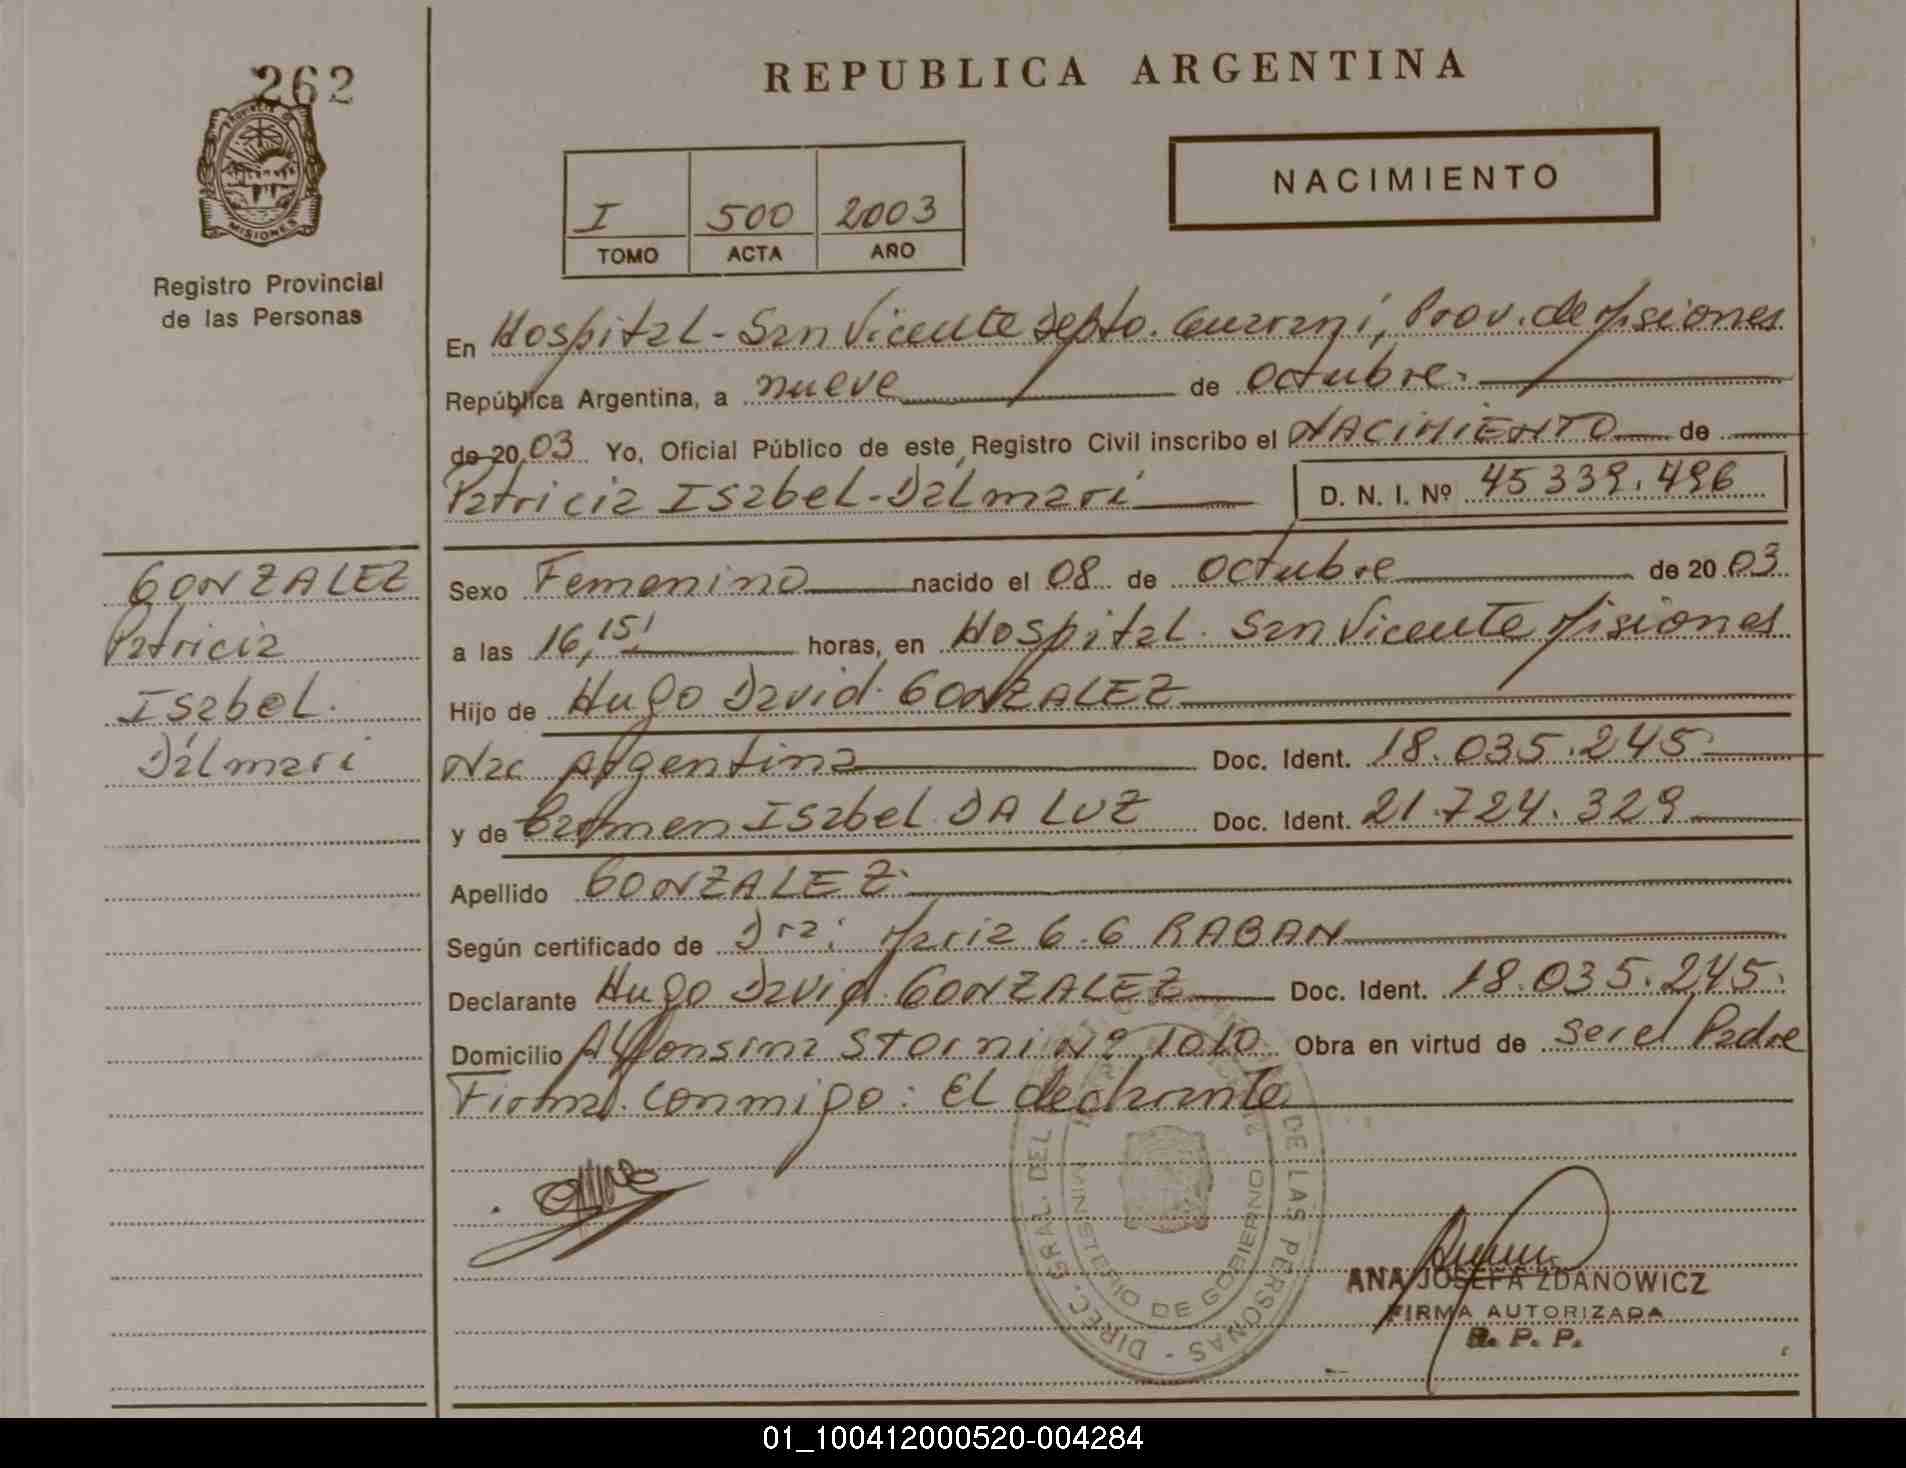 262
REPUBLICA ARGENTINA
PROVINCIA DE
MISIONES
Registro Provincial
de las Personas
I 500 2003
TOMO ACTA AÑO
NACIMIENTO
En Hospital - San Vicente Depto. Guaraní, Prov. de Misiones
República Argentina, a nueve de octubre.
de 2003 Yo, Oficial Público de este Registro Civil inscribo el NACIMIENTO de
Patricia Isabel - Dalmari D. N. I. Nº 45339.496
GONZALEZ
Patricia
Isabel.
Dalmari
Sexo Femenino nacido el 08 de octubre de 2003
a las 16,15' horas, en Hospital. San Vicente Misiones
Hijo de Hugo David. GONZALEZ
Nac Argentina Doc. Ident. 18.035.245
y de Carmen Isabel DA LUZ Doc. Ident. 21.724.329
Apellido GONZALEZ
Según certificado de Dra: Maria G.G RABAN
Declarante Hugo David. GONZALEZ Doc. Ident. 18.035.245.
Domicilio Alfonsina Storni Nº 1010 Obra en virtud de ser el Padre
Firma. Conmigo: El declarante
DIREC. GRAL. DEL DE LAS PERSONAS
MINISTERIO DE GOBIERNO
ANA JOSEFA ZDANOWICZ
FIRMA AUTORIZADA
R. P. P.
01_100412000520-004284